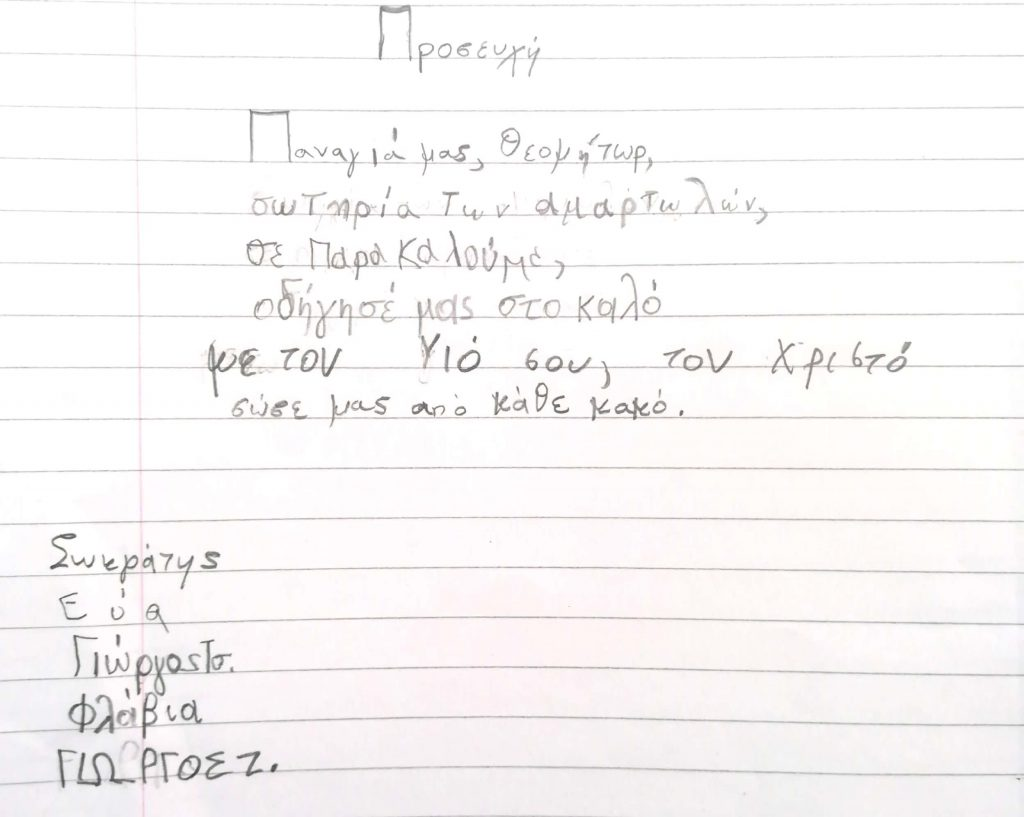 Προσευχή
Παναγιά μας, Θεομήτωρ,
σωτηρία των αμαρτωλών,
σε παρακαλούμε,
οδήγησέ μας στο καλό
με τον Υιό σου, τον Χριστό
σώσε μας από κάθε κακό.
Σωκράτης
Εύα
Γιώργος Τσ.
Φλάβια
ΓΙΩΡΓΟΣ Ζ.